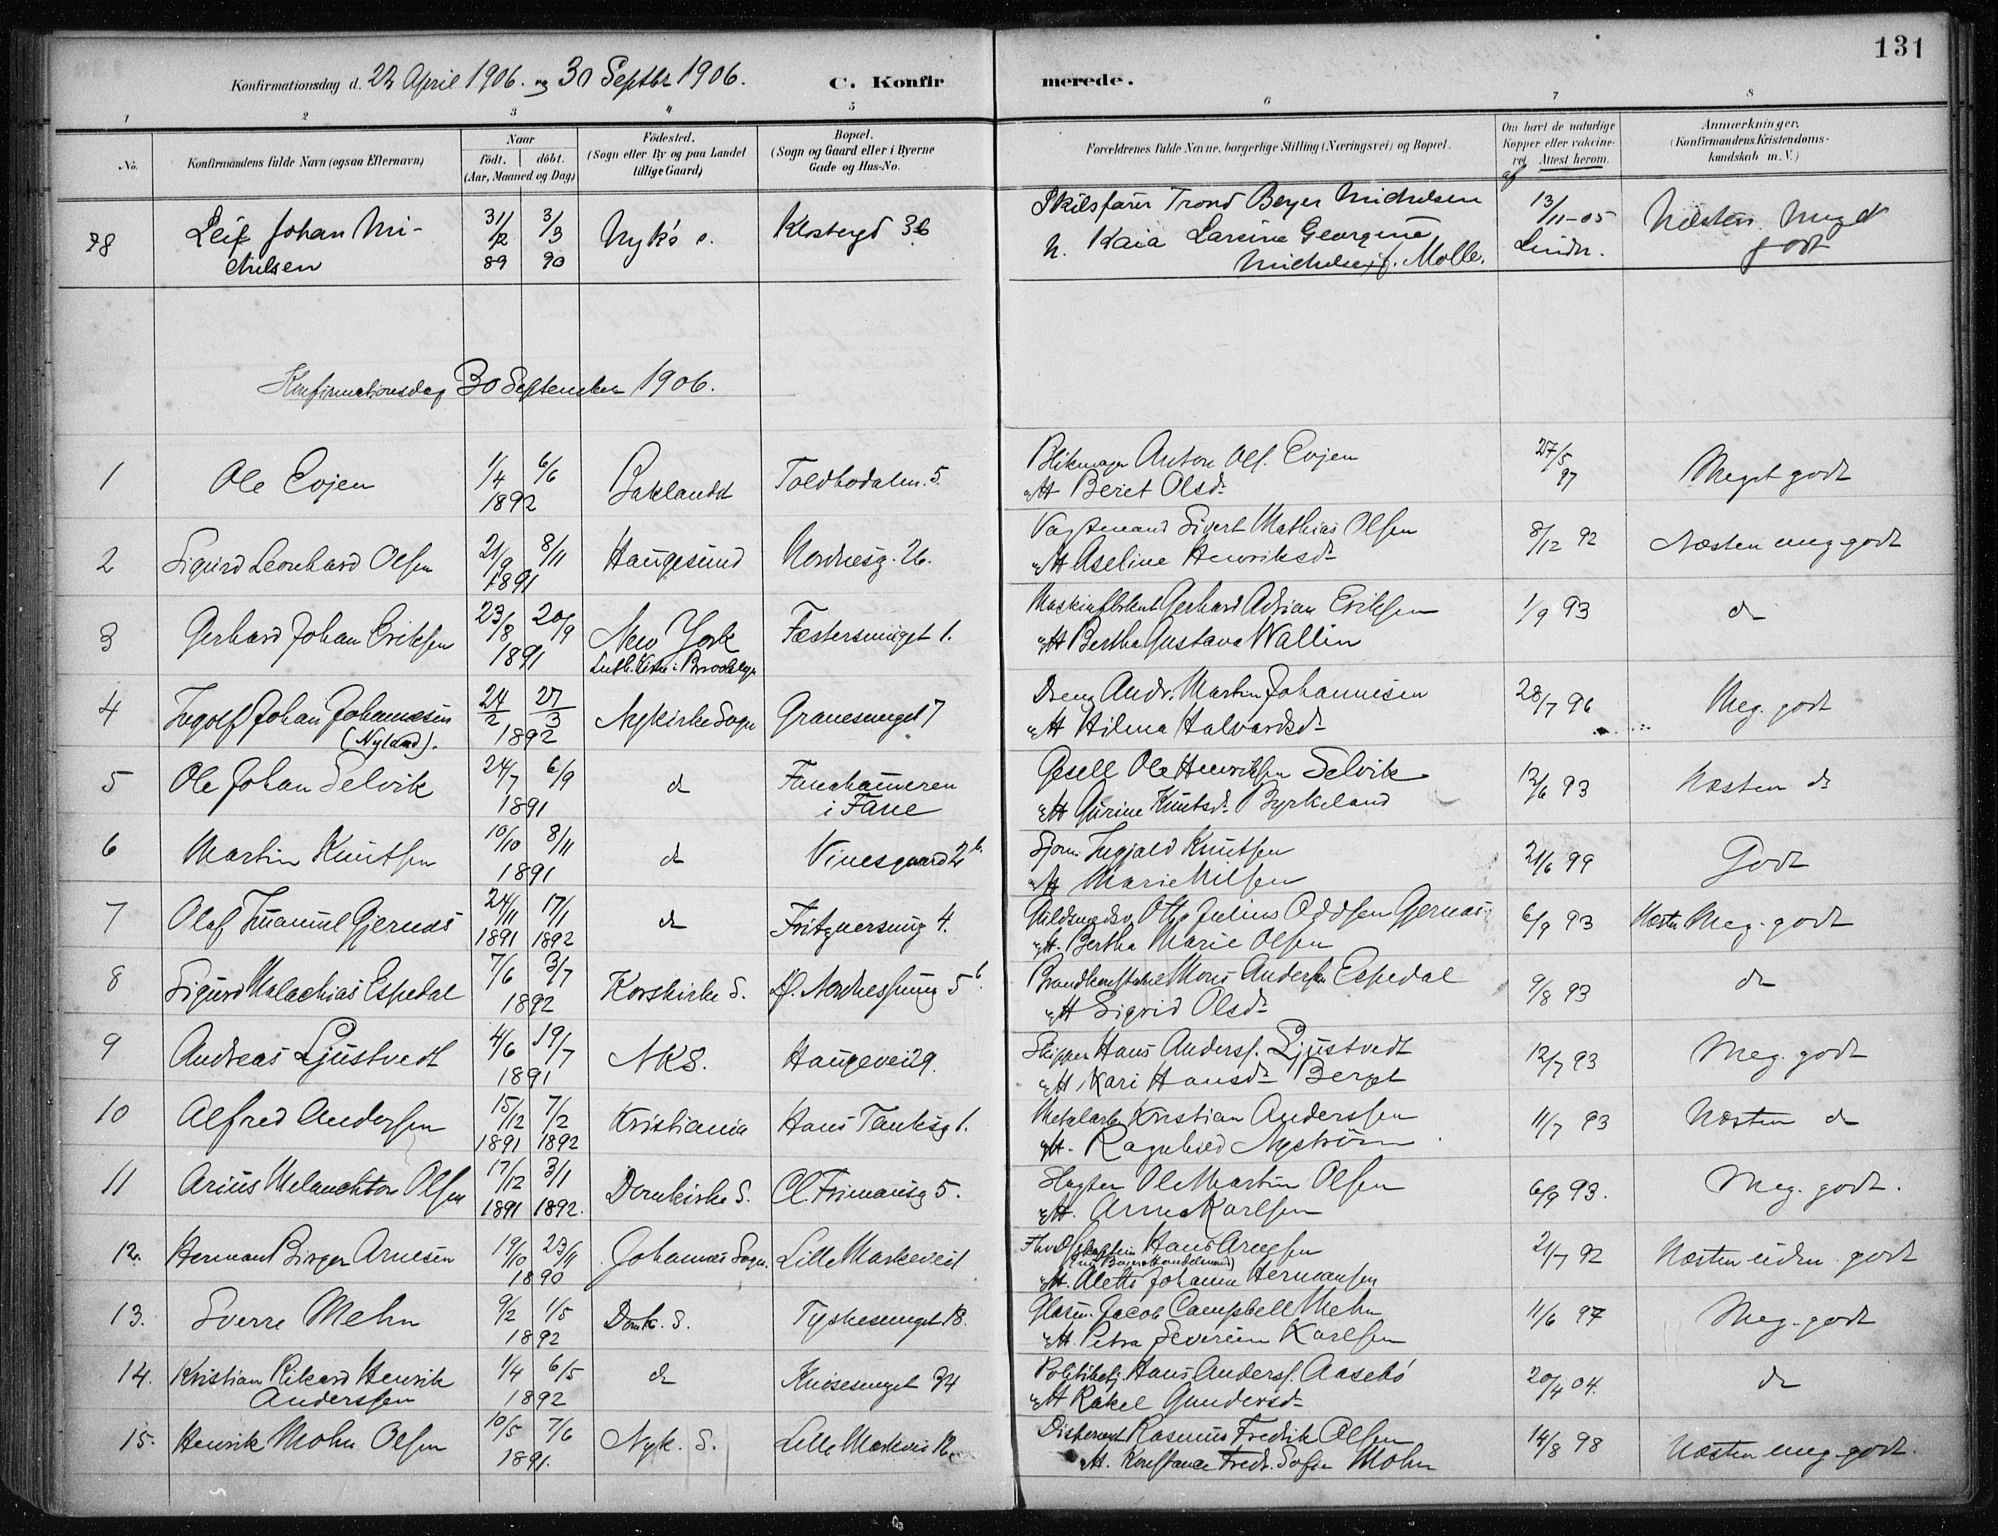 131
Konfirmationsdag d. 22 April 1906. og 30 Septbr 1906. C. Konfirmerede.
1 2 3 4 5 6 7 8
No. Konfirmandens fulde Navn (ogsaa Efternavn) Naar født. døbt. (Aar, Maaned og Dag) Fødested. (Sogn eller By og paa Landet tillige Gaard) Bopæl. (Sogn og Gaard eller i Byerne Gade og Hus-No. Forældrenes fulde Navne, borgerlige Stilling (Næringsvei) og Bopæl. Om havt de naturlige Kopper eller vakcineret Attest herom. af Anmærkninger. (Konfirmandens Kristendomskundskab m. V.)
28 Leif Johan Mi- 31/12 89 3/3 90 Nyk s. Klostergd 36 Trond Beyer Michelsen 13/11-05 Næsten Meget
chelsen H. Kaia Larsine Georgine Lindr. godt
Michelsen f. Molle.
Konfirmationsdag 30 September 1906.
1 Ole Evjen 1/4 6/6 Baklandet Toldbodalm. 5. Blikmager Anton Ols. Evjen 27/5 97 Meget godt
1892 og H Beret Olsdr
2 Sigurd Leonhard Olsen 21/9 8/11 Haugesund Nordnesg. 26. Vagtmand Sivert Mathias Olsen 8/12 92 Næsten meg. godt
1891 og H Aseline Henriksdr
3 Gerhard Johan Eriksen 23/8 20/9 New York Fæstersmuget 1. Gerhard Adrian Eriksen 1/9 93 do
1891 Luth. Kirke i Brooklyn og H Bertha Gustava Wallin
4 Ingolf Johan Johannesen 24/2 27/3 Nykirke Sogn Gravesmuget 7 Dreng Andr. Martin Johannesen 28/7 96 Meg. godt
(Nyland). 1892 og H Hilma Halvardsdr
5 Ole Johan Selvik 24/7 6/9 do Fanehammeren Gesell Ole Henriksen Selvik 12/6 93 Næsten do
1891 i Fane og H Gurine Knutsdr Byrkeland
6 Martin Knutsen 10/10 8/11 do Vinesgaard 2b. Sjøm. Ingjald Knutsen 21/6 99 Godt
1891 og H Marie Nilsen
7 Olaf Imanuel Gjernæs 24/11 17/1 do Fritznersmug 4. Otto Julius Oddsen Gjernæs 6/9 93 Næsten Meg. godt
1891 1892 og H. Bertha Marie Olsen
8 Sigurd Malachias Espedal 7/6 3/7 Korskirke S. Nordnessmug 5b. Brandkonstabel Mons Andersen Espedal 9/8 93 do
1892 og H Sigrid Olsdr
9 Andreas Ljustvedt 4/6 19/7 NKS. Haugevei 29. Skipper Hans Anders. Ljustvedt 12/7 93 Meg. godt
1891 og H. Kari Hansdr Berget
10 Alfred Andersen 15/12 7/2 Kristiania Hans Tanksg 1. Metalarb. Kristian Anderssen 11/7 93 Næsten do
1891 1892 og H. Ragnhild Nystrøm
11 Arius Melanchton Olsen 17/12 3/1 Domkirke S. Cl. Frimansg 5. Slagter Ole Martin Olsen 6/9 93. Meg. godt.
1891 1892. og H. Anna Karlsen
12. Herman Birger Arnesen 19/10 23/11 Johannes Sogn. Lille Markeveil Hans Arnesen 21/7 92 Næsten uden godt
1890 (nu Bager Handelsmand)
og H. Aletta Johanne Hermansen
13. Sverre Mehn 9/2 1/5 Domk. S. Tyskesmuget 18. Jacob Campbell Mehn 11/6 97 Meg. godt
1892 og H. Petra Severien Karlsen
14. Kristian Rikard Henrik 1/4 6/5 do Knøsesmuget 34 Politibetj. Hans Anders. Aasebø 20/4 04. do
Anderssen 1892 og H Rakel Gundersdr
15. Henrik Mohn Olsen 10/5 7/6 Nyk. S. Lille Markevei 12. Rasmus Fredrik Olsen 14/8 98 Næsten meg. godt.
1891. og H. Konstance Fredr. Sofie Mohn